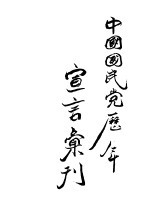 中國國民党歷年
宣言彙刊